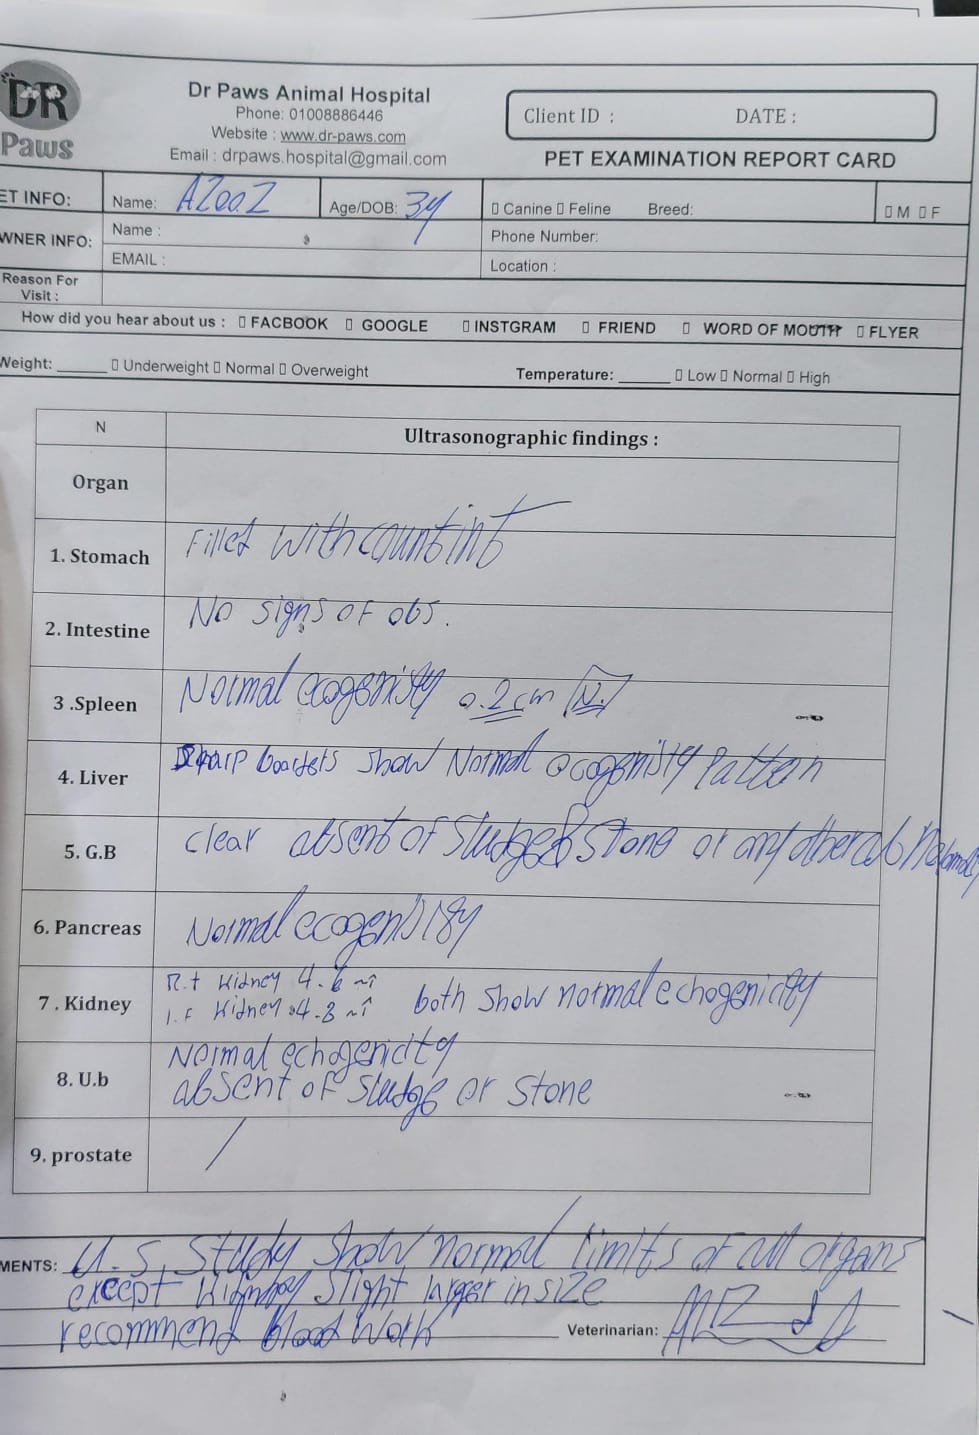 DR
Paws
Dr Paws Animal Hospital
Phone: 01008886446
Website : www.dr-paws.com
Email : drpaws.hospital@gmail.com
Client ID : DATE :
PET EXAMINATION REPORT CARD
ET INFO: Name: AZooZ Age/DOB: 3y ▯ Canine ▯ Feline Breed: ▯ M ▯ F
WNER INFO: Name : Phone Number:
EMAIL : Location :
Reason For
Visit :
How did you hear about us : ▯ FACBOOK ▯ GOOGLE ▯ INSTGRAM ▯ FRIEND ▯ WORD OF MOUTH ▯ FLYER
Weight: ______ ▯ Underweight ▯ Normal ▯ Overweight Temperature: ______ ▯ Low ▯ Normal ▯ High
N Ultrasonographic findings :
Organ
1. Stomach Filled with countint
2. Intestine No signs of obs.
3 .Spleen Normal ecogenisty 0.2 cm N.
4. Liver Sharp boarders show Normal ecogenisty Pattern
5. G.B clear absent of sludge & stone or any other abnormality
6. Pancreas Normal ecogenisity
7 . Kidney R.t Kidney 4.6
l.f Kidney 4.8 both show normal echogenicity
8. U.b Normal echogenicity
absent of sludge or stone
9. prostate /
MENTS: U.S, study show normal limits of all organs
except slight larger in size
recommend blood work Veterinarian: